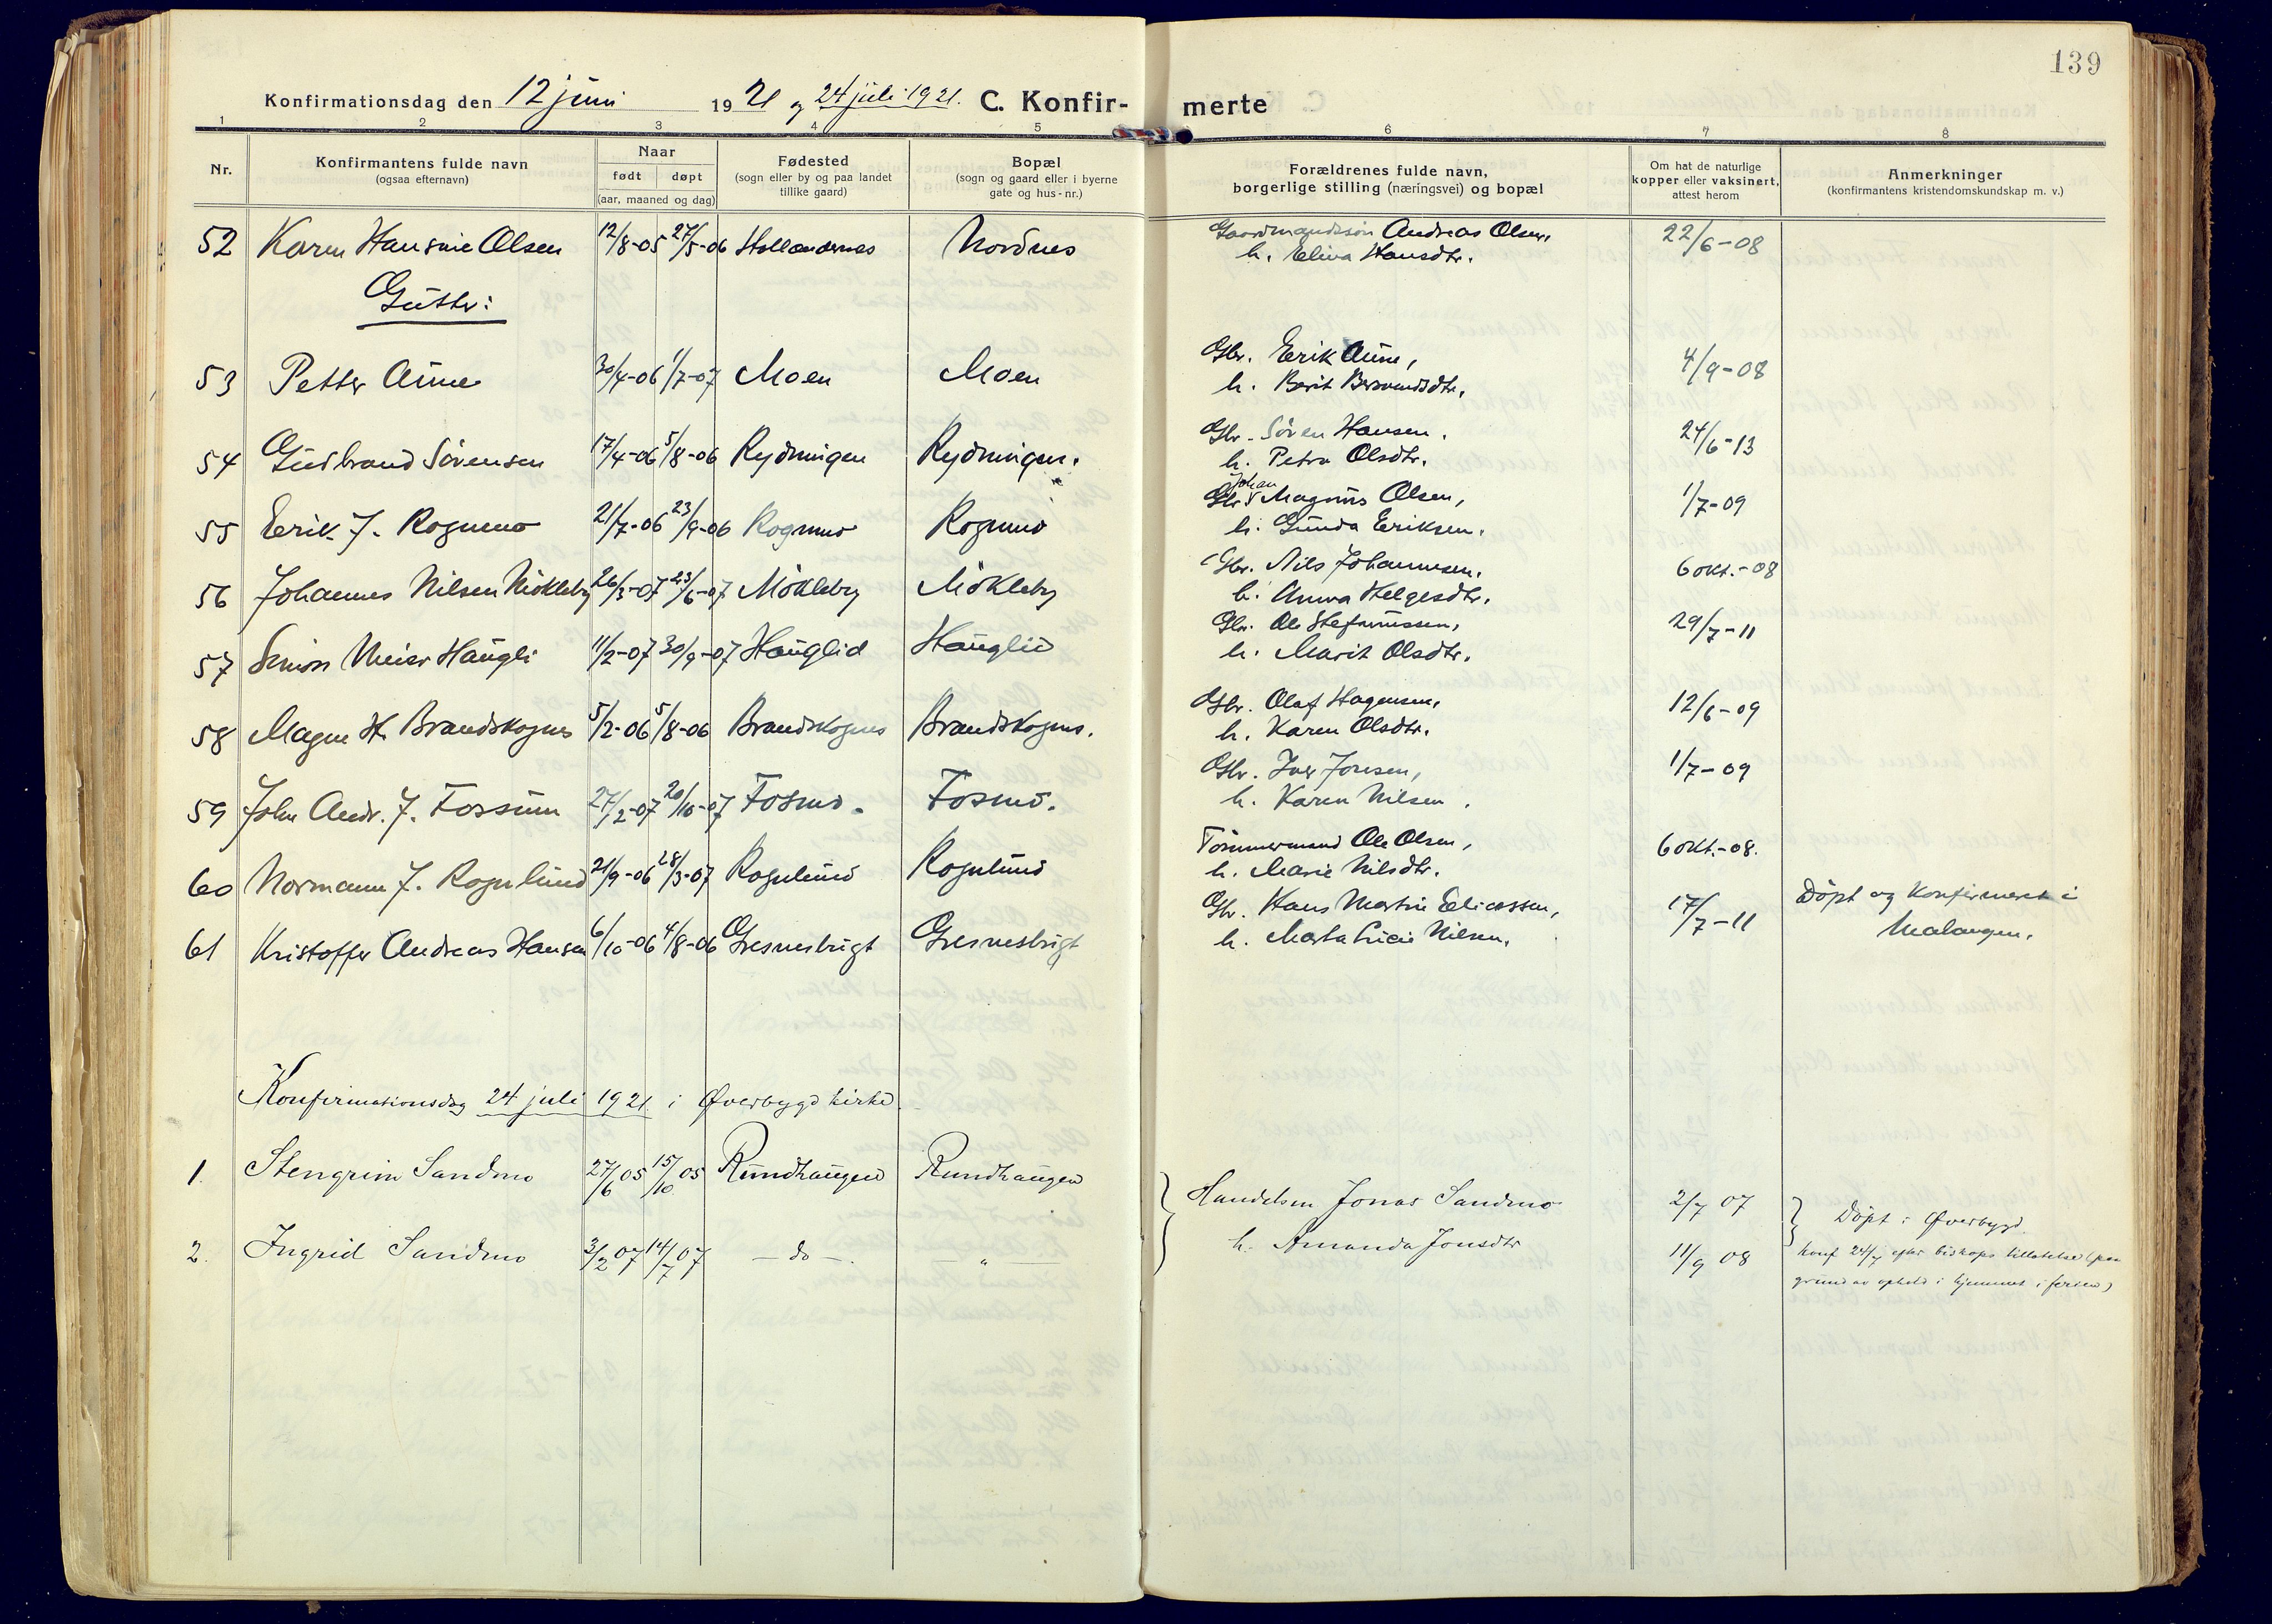 139
Konfirmationsdag den 12 juni 1921 og 24 juli 1921. C. Konfir- merte
1 2 3 4 5 6 7 8
Nr.
Konfirmantens fulde navn
(ogsaa efternavn)
Naar
født døpt
(aar, maaned og dag)
Fødested
(sogn eller by og paa landet
tillike gaard)
Bopæl
(sogn og gaard eller i byerne
gate og hus-nr.)
Forældrenes fulde navn,
borgerlige stilling (næringsvei) og bopæl
Om hat de naturlige
kopper eller vaksinert,
attest herom
Anmerkninger
(konfirmantens kristendomskundskap m. v.)
52 Karen Hansine Olsen 12/8-05 27/5-06 Hollandernes Nordnes Gaardmandssøn Andreas Olsen, 22/6-08
h. Elina Hansdtr.
Gutter:
53 Petter Aune 30/4-06 1/7-07 Moen Moen Gbr. Erik Aune, 4/9-08
h. Berit Bersvendsdtr.
54 Gudbrand Sörensen 17/4-06 5/8-06 Rydningen Rydningen. Gbr. Sören Hansen. 24/6-13
h. Petra Olsdtr.
55 Erik J. Rognmo 21/7-06 23/9-06 Rognmo Rognmo Gbr. Johan Magnus Olsen, 1/7-09
h. Gunda Eriksen.
56 Johannes Nilsen Mökleby 26/3-07 23/6-07 Mökleby Mökleby Gbr. Nils Johannesen, 6 okt.-08
h. Anna Helgesdtr.
57 Simon Meier Haugli 11/2-07 30/9-07 Hauglid Hauglid Gbr. Ole Stefanussen, 29/7-11
h. Marit Olsdtr.
58 Magne H. Brandskognes 5/2-06 5/8-06 Brandskognes Brandskognes. Gbr. Olaf Hagensen, 12/6-09
h. Karen Olsdtr.
59 John Andr. J. Fossum 27/2-07 20/10-07 Fosmo. Fosmo. Gbr. Iver Jonsen, 1/7-09
h. Karen Nilsen.
60 Normann J. Rognlund 21/9-06 28/3-07 Rognlund Rognlund Tömmermand Ole Olsen, 6 okt.-08.
h. Marie Nilsdtr.
61 Kristoffer Andreas Hansen 6/10-06 4/8-06 Gresnesbugt Gresnesbugt Gbr. Hans Martin Eliassen, 17/7-11 Döpt og konfirmert i
h. Marta Lucie Nilsen. Malangen.
Konfirmationsdag 24 juli 1921 i Øverbygd kirke.
1. Stengrim Sandmo 27/6 05 15/10 05 Rundhaugen Rundhaugen Handelsm Jonas Sandmo 2/7 07 Döpt i Øverbygd.
2. Ingrid Sandmo 3/2 07 14/7 07 - do - - „ - h. Amanda Jonsdtr 11/9 08 konf 24/7 efter biskops tillatelse (paa
grund av ophold i hjemmet i ferien)